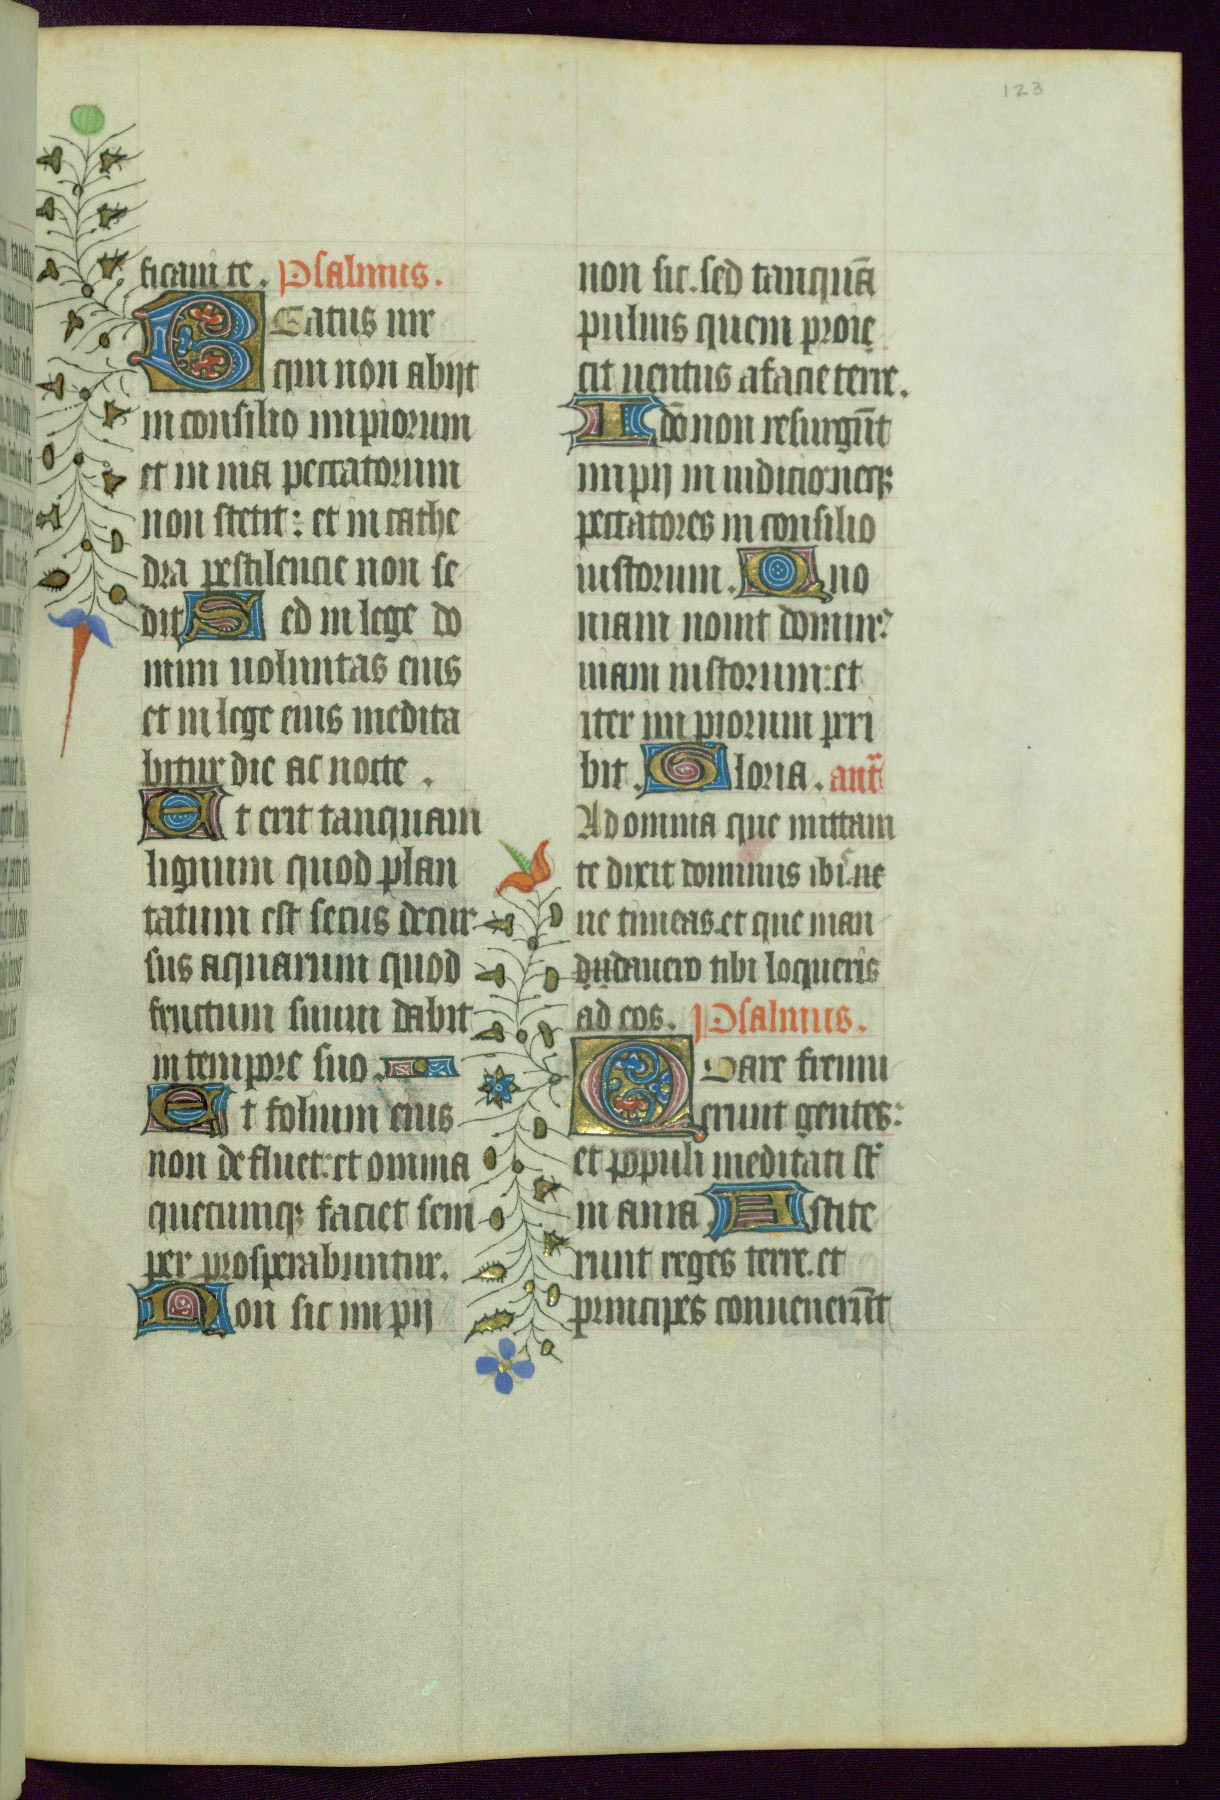 123
ficaui te. Psalmus.
BEatus uir
qui non abijt
in consilio impiorum
et in uia peccatorum
non stetit: et in cathe
dra pestilencie non se
dit Sed in lege do
mini uoluntas eius
et in lege eius medita
bitur die ac nocte.
Et erit tanquam
lignum quod plan
tatum est secus decur
sus aquarum quod
fructum suum dabit
in tempore suo.
Et folium eius
non defluet: et omnia
quecumqꝫ faciet sem
per prosperabuntur.
Non sic impij
non sic. sed tanquā
puluis quem proie
cit uentus a facie terre.
Idō non resurgūt
impij in iudicio: neqꝫ
peccatores in consilio
iustorum. Quo
niam nouit domin᷒
uiam iustorum: et
iter impiorum peri
bit. Gloria. ant̄
Ad omnia que mittam
te dixit dominus ibis. ne
ne timeas. et que man
dauero tibi loqueris
ad eos. Psalmus.
Quare fremu
erunt gentes:
et populi meditati st̄
inania. Astite
runt reges terre. et
principes conuenerūt